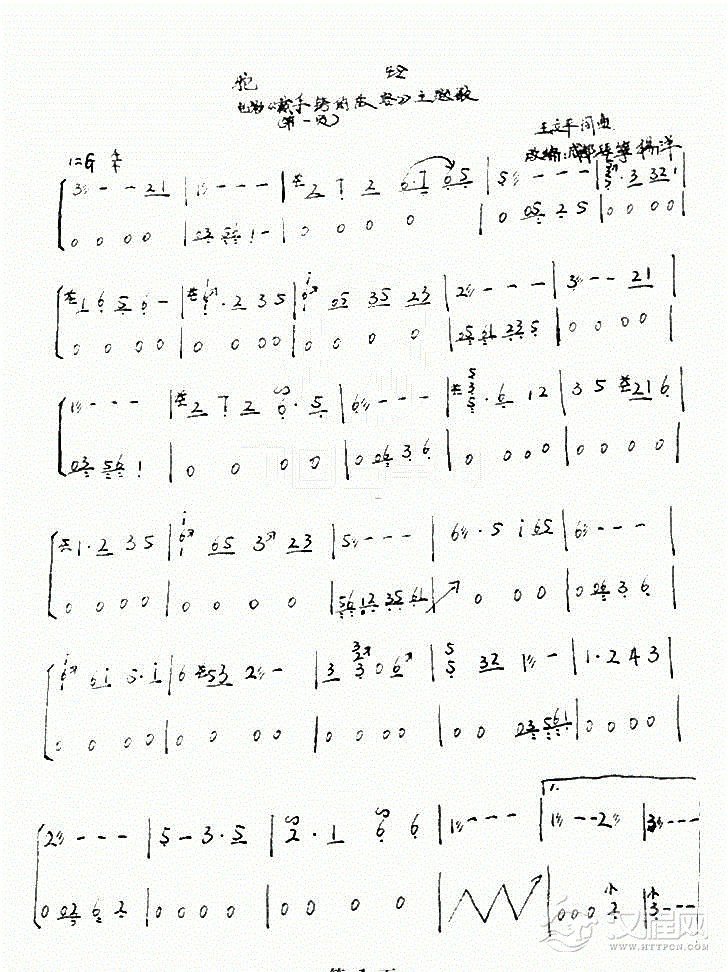 驼 铃
电影《戴手铐的旅客》主题歌
(第一页)
王立平 词曲
1=G
3 - - 21 | 1 - - - | 2 7 2 6·7 05 | 5 - - - | 5·3 321 |
0 0 0 0 | 03 56 1 - | 0 0 0 0 | 0 05 25 | 0 0 0 0 |
1 6 5 6 - | 6·2 35 | 6 05 35 23 | 2 - - - | 3 - - 21 |
0 0 0 0 | 0 0 0 0 | 0 0 0 0 | 05 61 23 5 | 0 0 0 0 |
1 - - - | 2 7 2 6·5 | 6 - - - | 5·6 12 | 3 5 21 6 |
03 56 1 | 0 0 0 0 | 0 06 3 6 | 0 0 0 0 | 0 0 0 0 |
1·2 35 | 6 65 3 23 | 5 - - - | 6·5 i 65 | 6 - - - |
0 0 0 0 | 0 0 0 0 | 56 12 35 61 | 0 0 0 | 0 06 3 6 |
6 6i 5·i | 6 53 2 - | 3 3 0 6 | 5 32 1 - | 1·2 4 3 |
0 0 0 0 | 0 0 0 0 | 0 0 0 0 | 0 0 03 561 | 0 0 0 0 |
2 - - - | 5 - 3·5 | 2·1 6 6 | 1 - - - | 1. 1 - - 2 | 3 - - - |
0 02 6 2 | 0 0 0 0 | 0 0 0 0 | 0 0 0 2 | 3 - - - |
汉程网
HTTPCN.COM